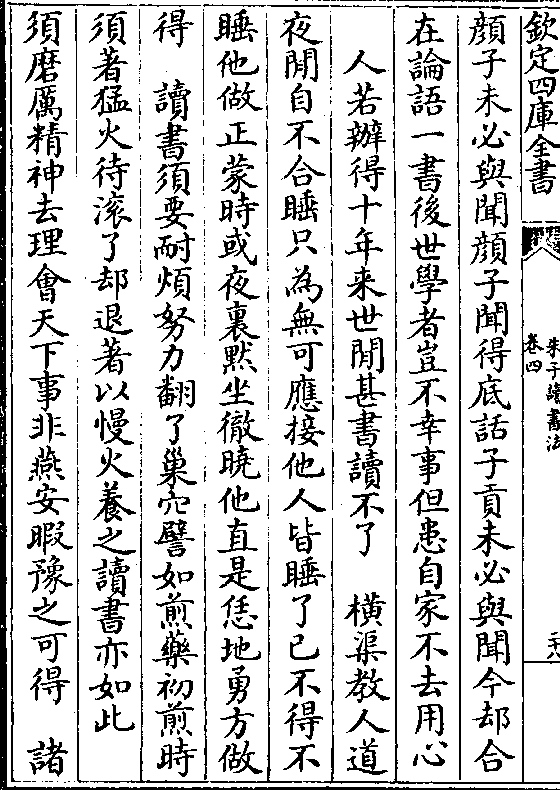 欽定四庫全書
朱子讀書法
卷四
二十八
顔子未必與聞顔子聞得底話子貢未必與聞今却合
在論語一書後世學者豈不幸事但患自家不去用心
人若辦得十年来世閒甚書讀不了　横渠教人道
夜閒自不合睡只為無可應接他人皆睡了已不得不
睡他做正蒙時或夜裏黙坐徹曉他直是恁地勇方做
得　讀書須要耐煩努力翻了巢穴譬如煎藥初煎時
須著猛火待滚了却退著以慢火養之讀書亦如此
須磨厲精神去理會天下事非燕安暇豫之可得　諸